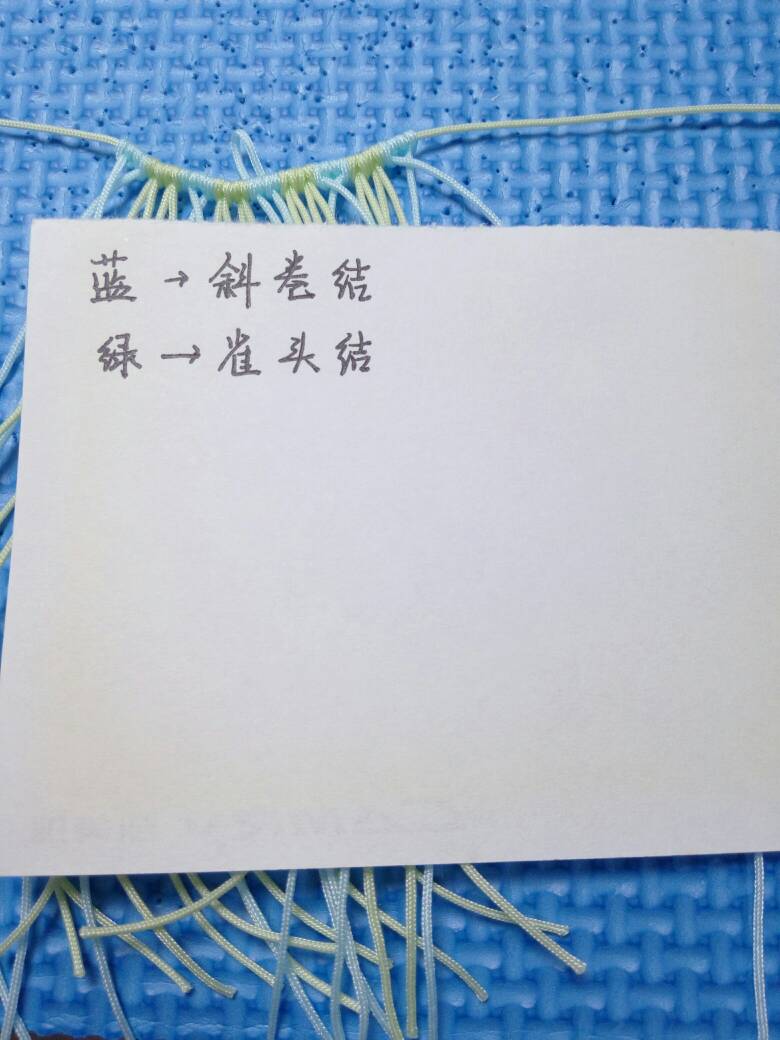 蓝→斜卷结
绿→雀头结